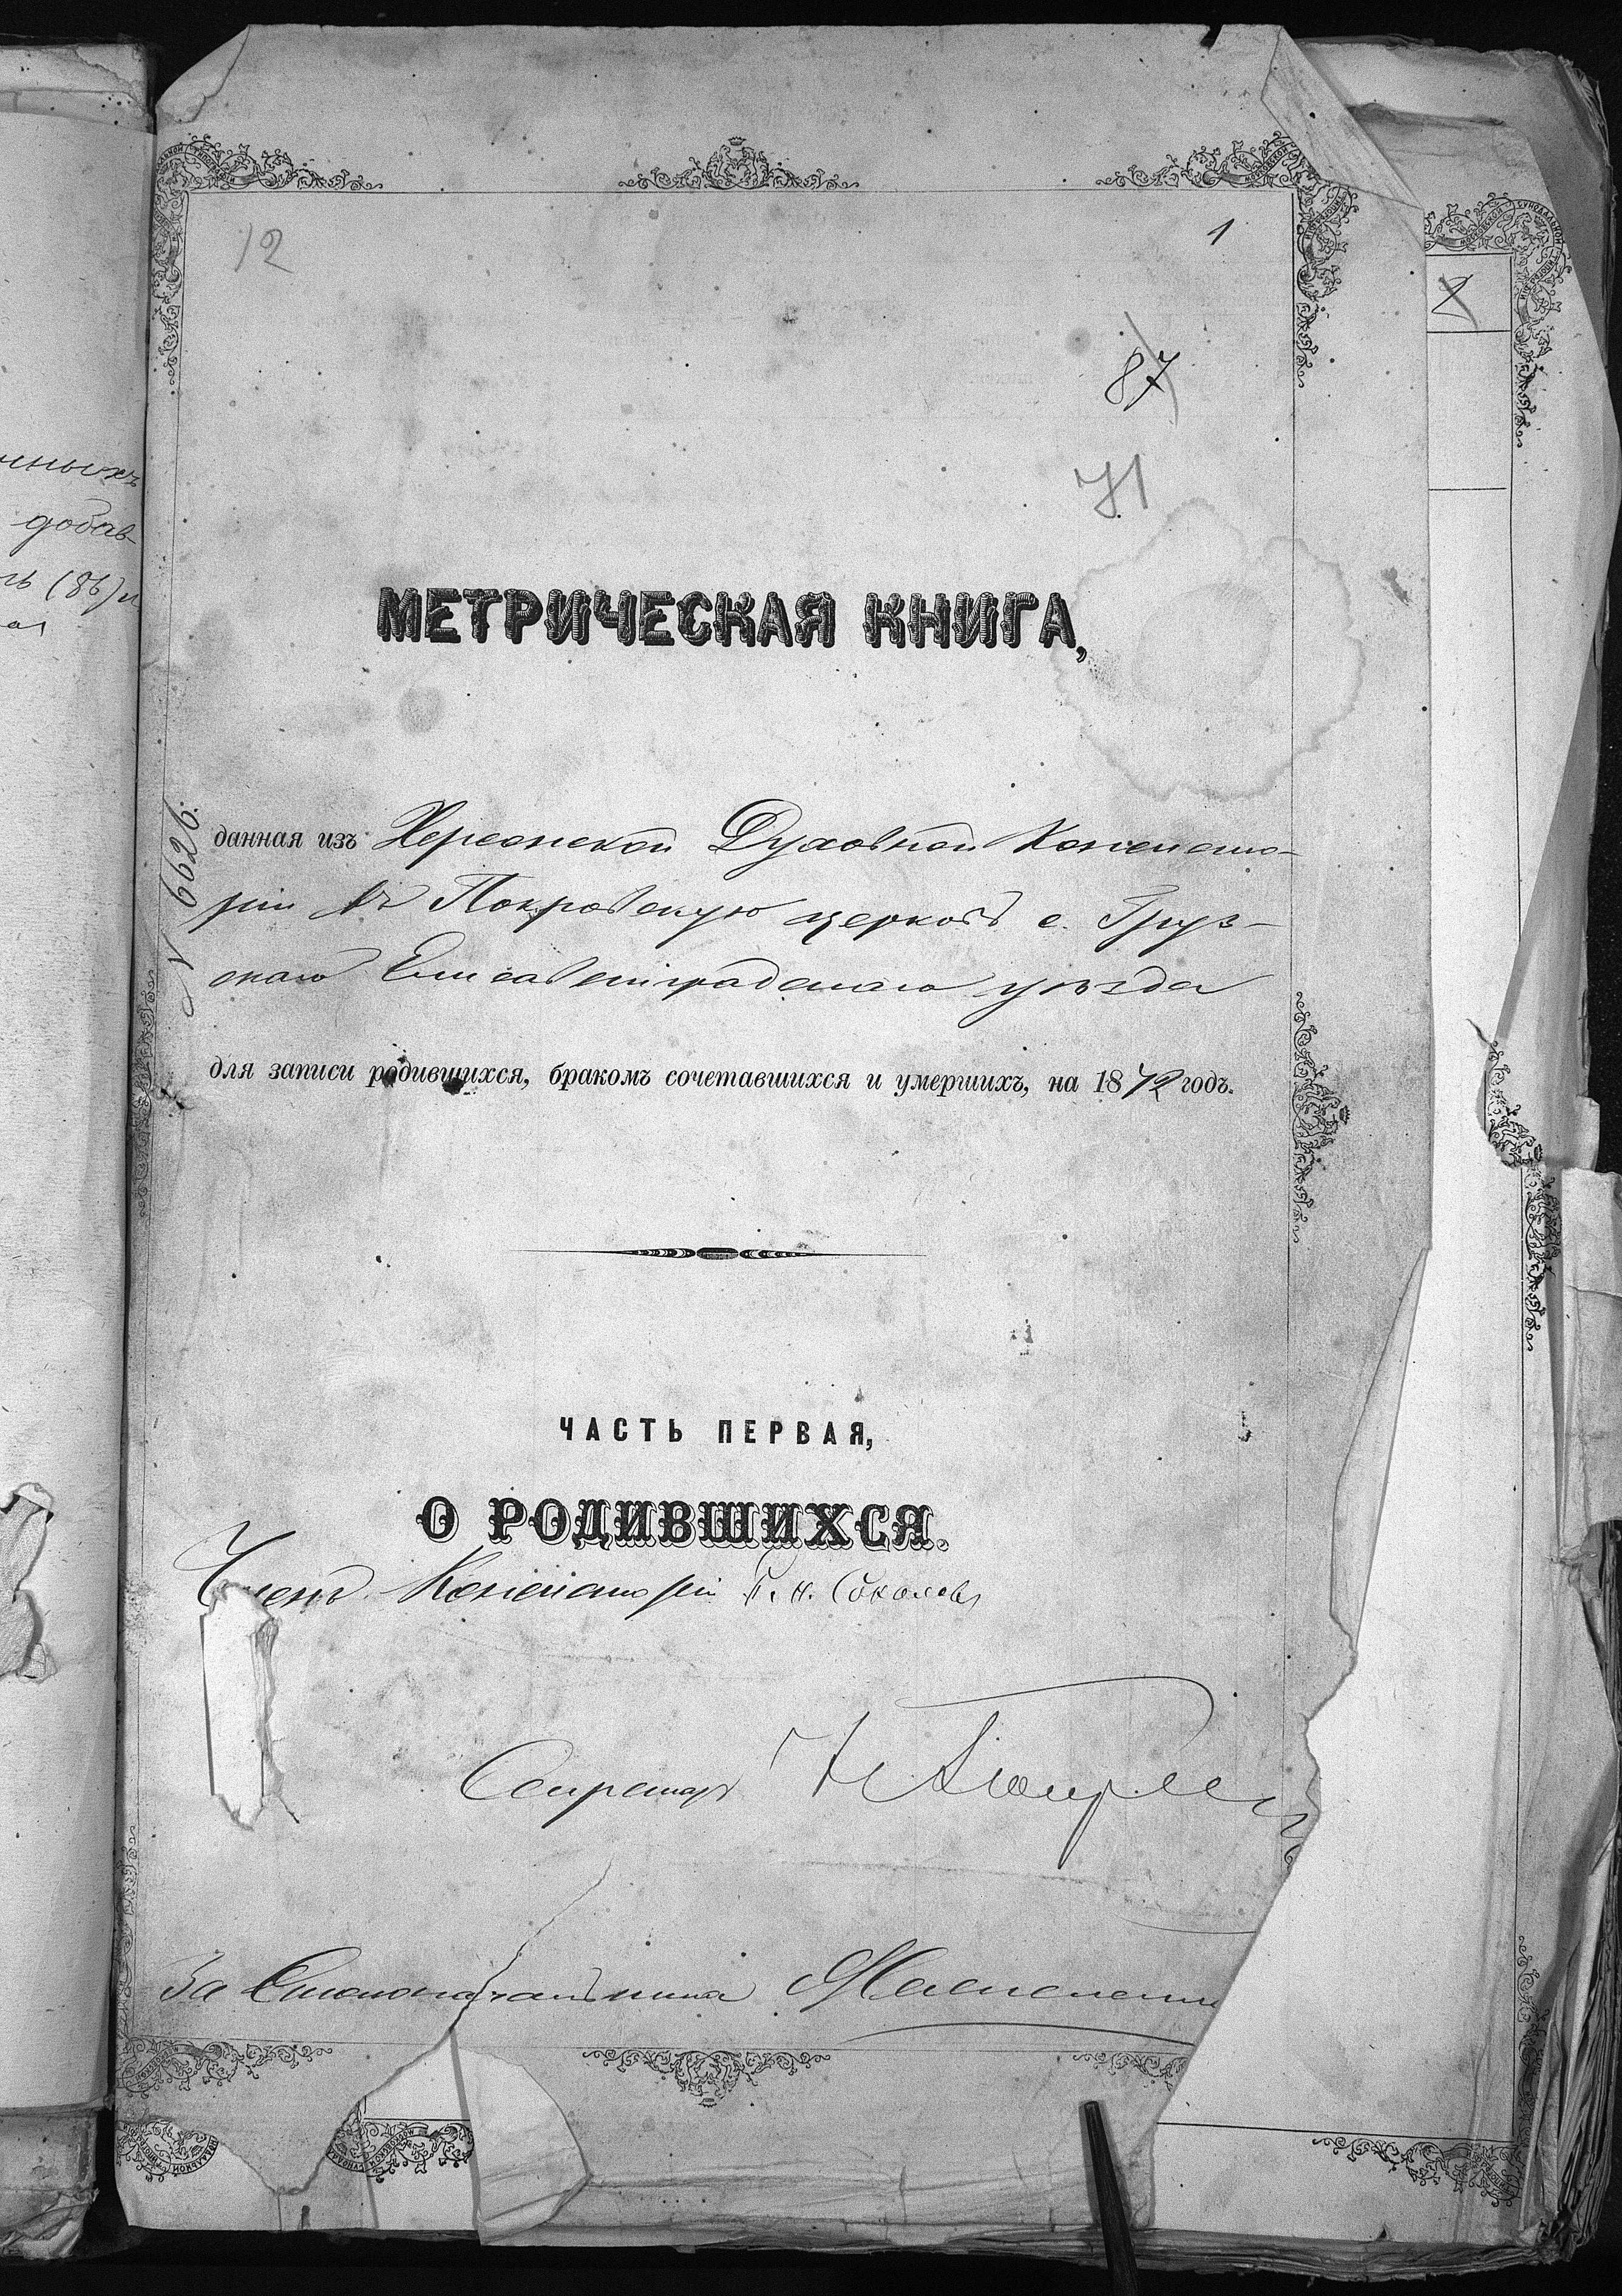 нныхъ
добав-
(86)
12
1
2
87
71
МЕТРИЧЕСКАЯ КНИГА,
№ 6626.
данная изъ Херсонской Духовной Консисто-
ріи въ Покровскую церковь с. Груз-
скаго Елисаветградскаго уѣзда
для записи родившихся, бракомъ сочетавшихся и умершихъ, на 1872 годъ.
ЧАСТЬ ПЕРВАЯ,
О РОДИВШИХСЯ.
Членъ Консисторіи Соколовъ
Секретарь
За Столоначальника